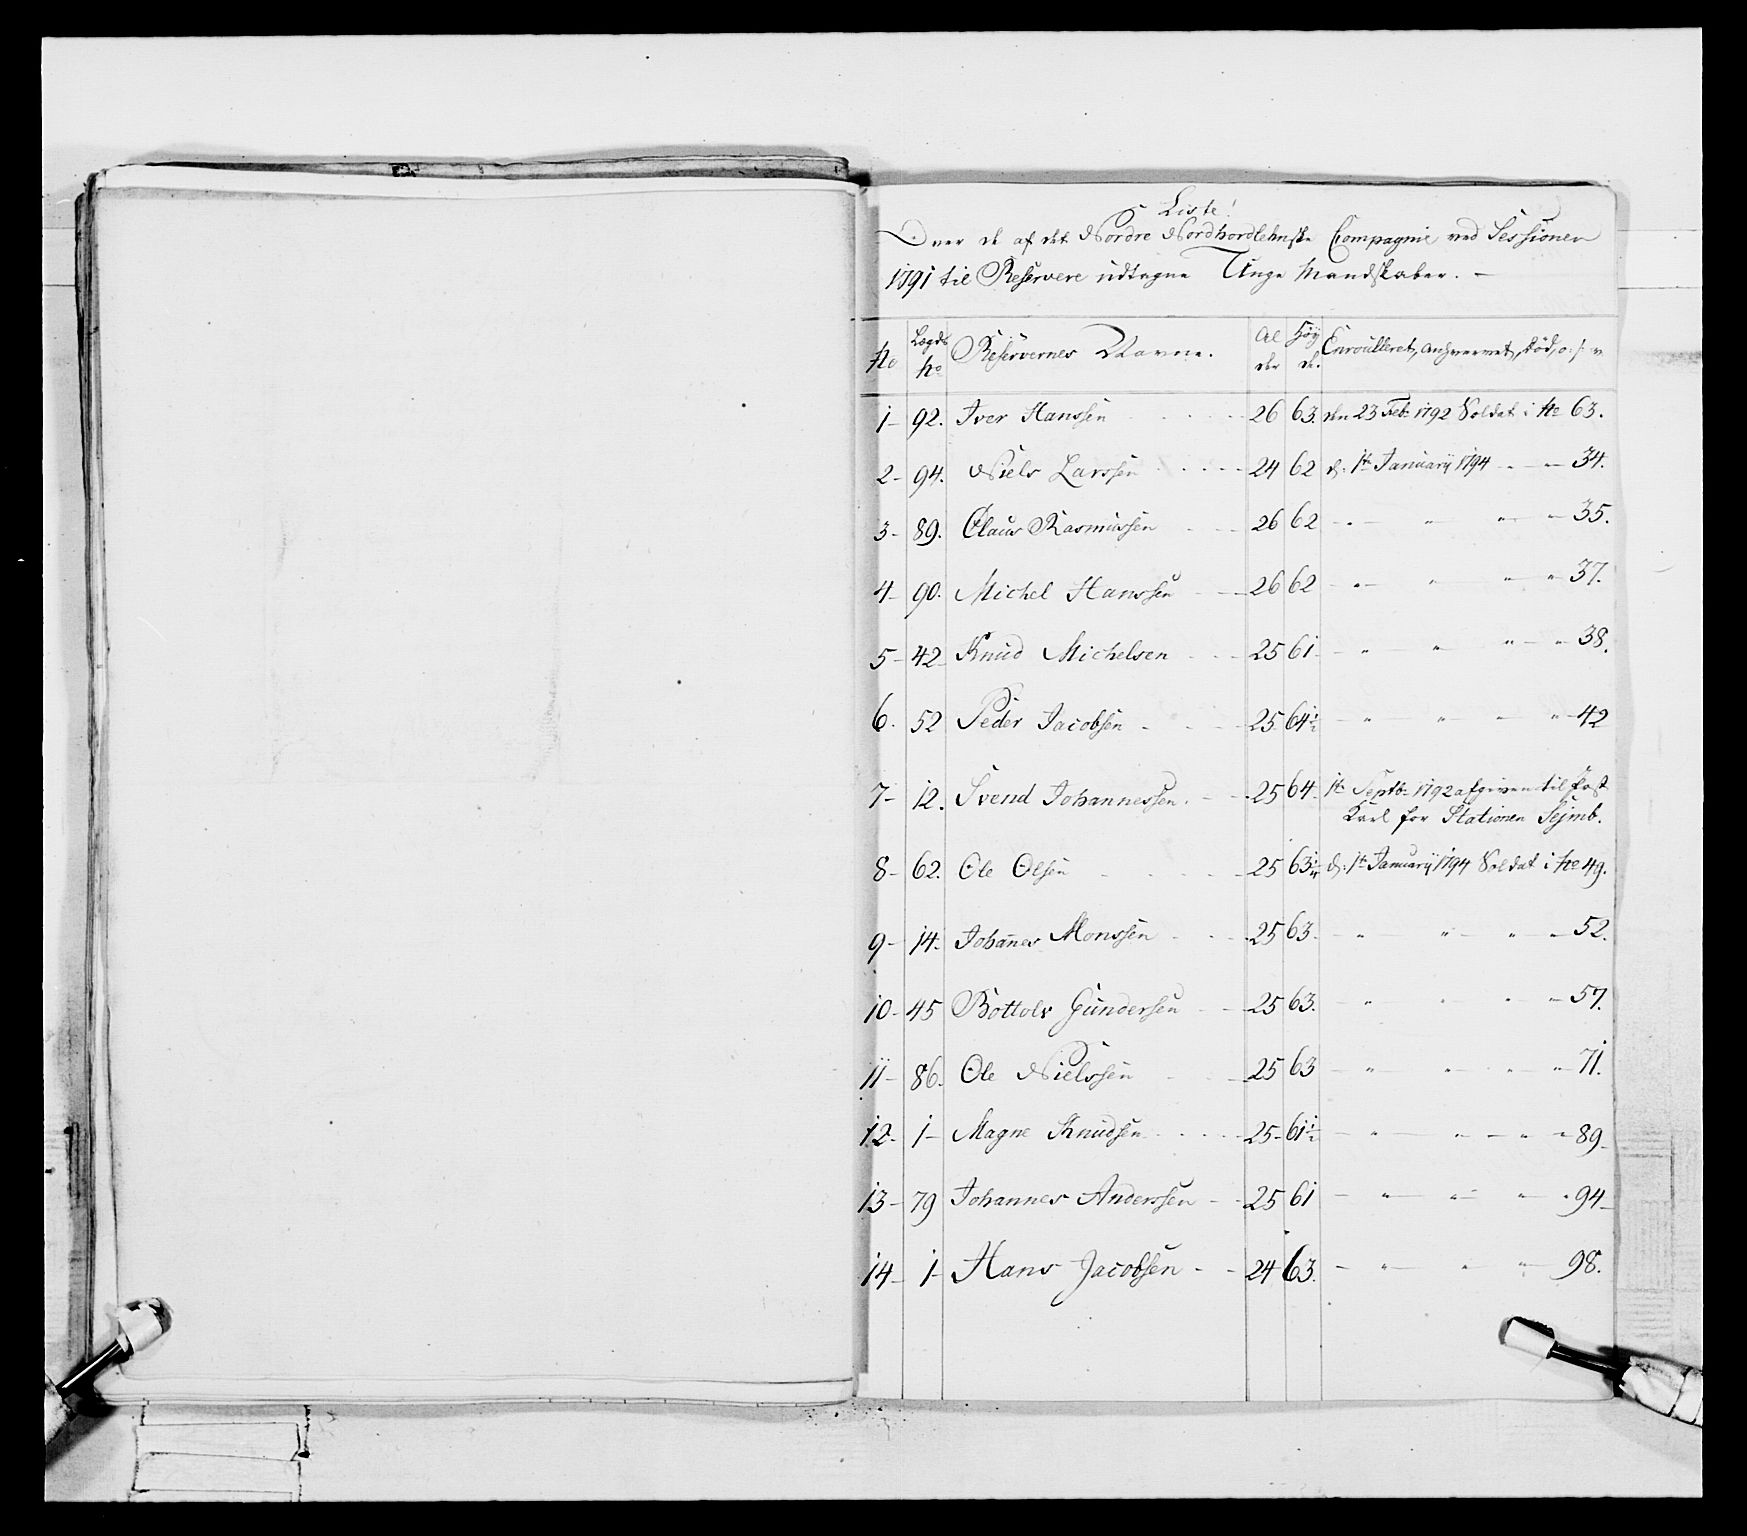 Liste!
Over de af det Nordre Nordhordlehnske Compagnie ved Sessionen
1791 til Reservere udtagne Unge Mandskaber. —
No Lægds No Reservernes Navne. Al der Høy de. Enroulleret, anhvervet, död, o: s: v
1 - 92. Iver Hanssen 26 63. den 23 Feb: 1792 Soldat i No 63.
2 - 94. Niels Larssen 24 62 d: 1te Januarii 1794 " — 34.
3 - 89. Claus Rasmussen 26 62 - " — " " — 35.
4 - 90. Michel Hanssen 26 62 - " — " " " 37.
5 - 42 Knud Michelsen 25 61 - " " " — " 38.
6. 52 Peder Jacobsen 25 64½ - " " — " 42
7 - 12. Svend Johannessen. 25 64 1te Septb: 1792 afgiven til fast
Karl for Stationen Sejmb.
8 - 62. Ole Olsen 25 63¼ d: 1te Januarii 1794 Soldat i No 49.
9 - 14. Johanes Monssen 25 63. - " " — " — 52.
10 - 45 Bottolv Gundersen 25 63. - " " " — 57.
11 - 86. Ole Nielssen 25 63 - " — " " " 71.
12 - 1 - Magne Knudsen 25 61½ - " — " — " — " 89
13 - 79 Johannes Anderssen 25 61 - " " — " " 94
14 - 1 - Hans Jacobsen 24 63. - " — " " — 98.